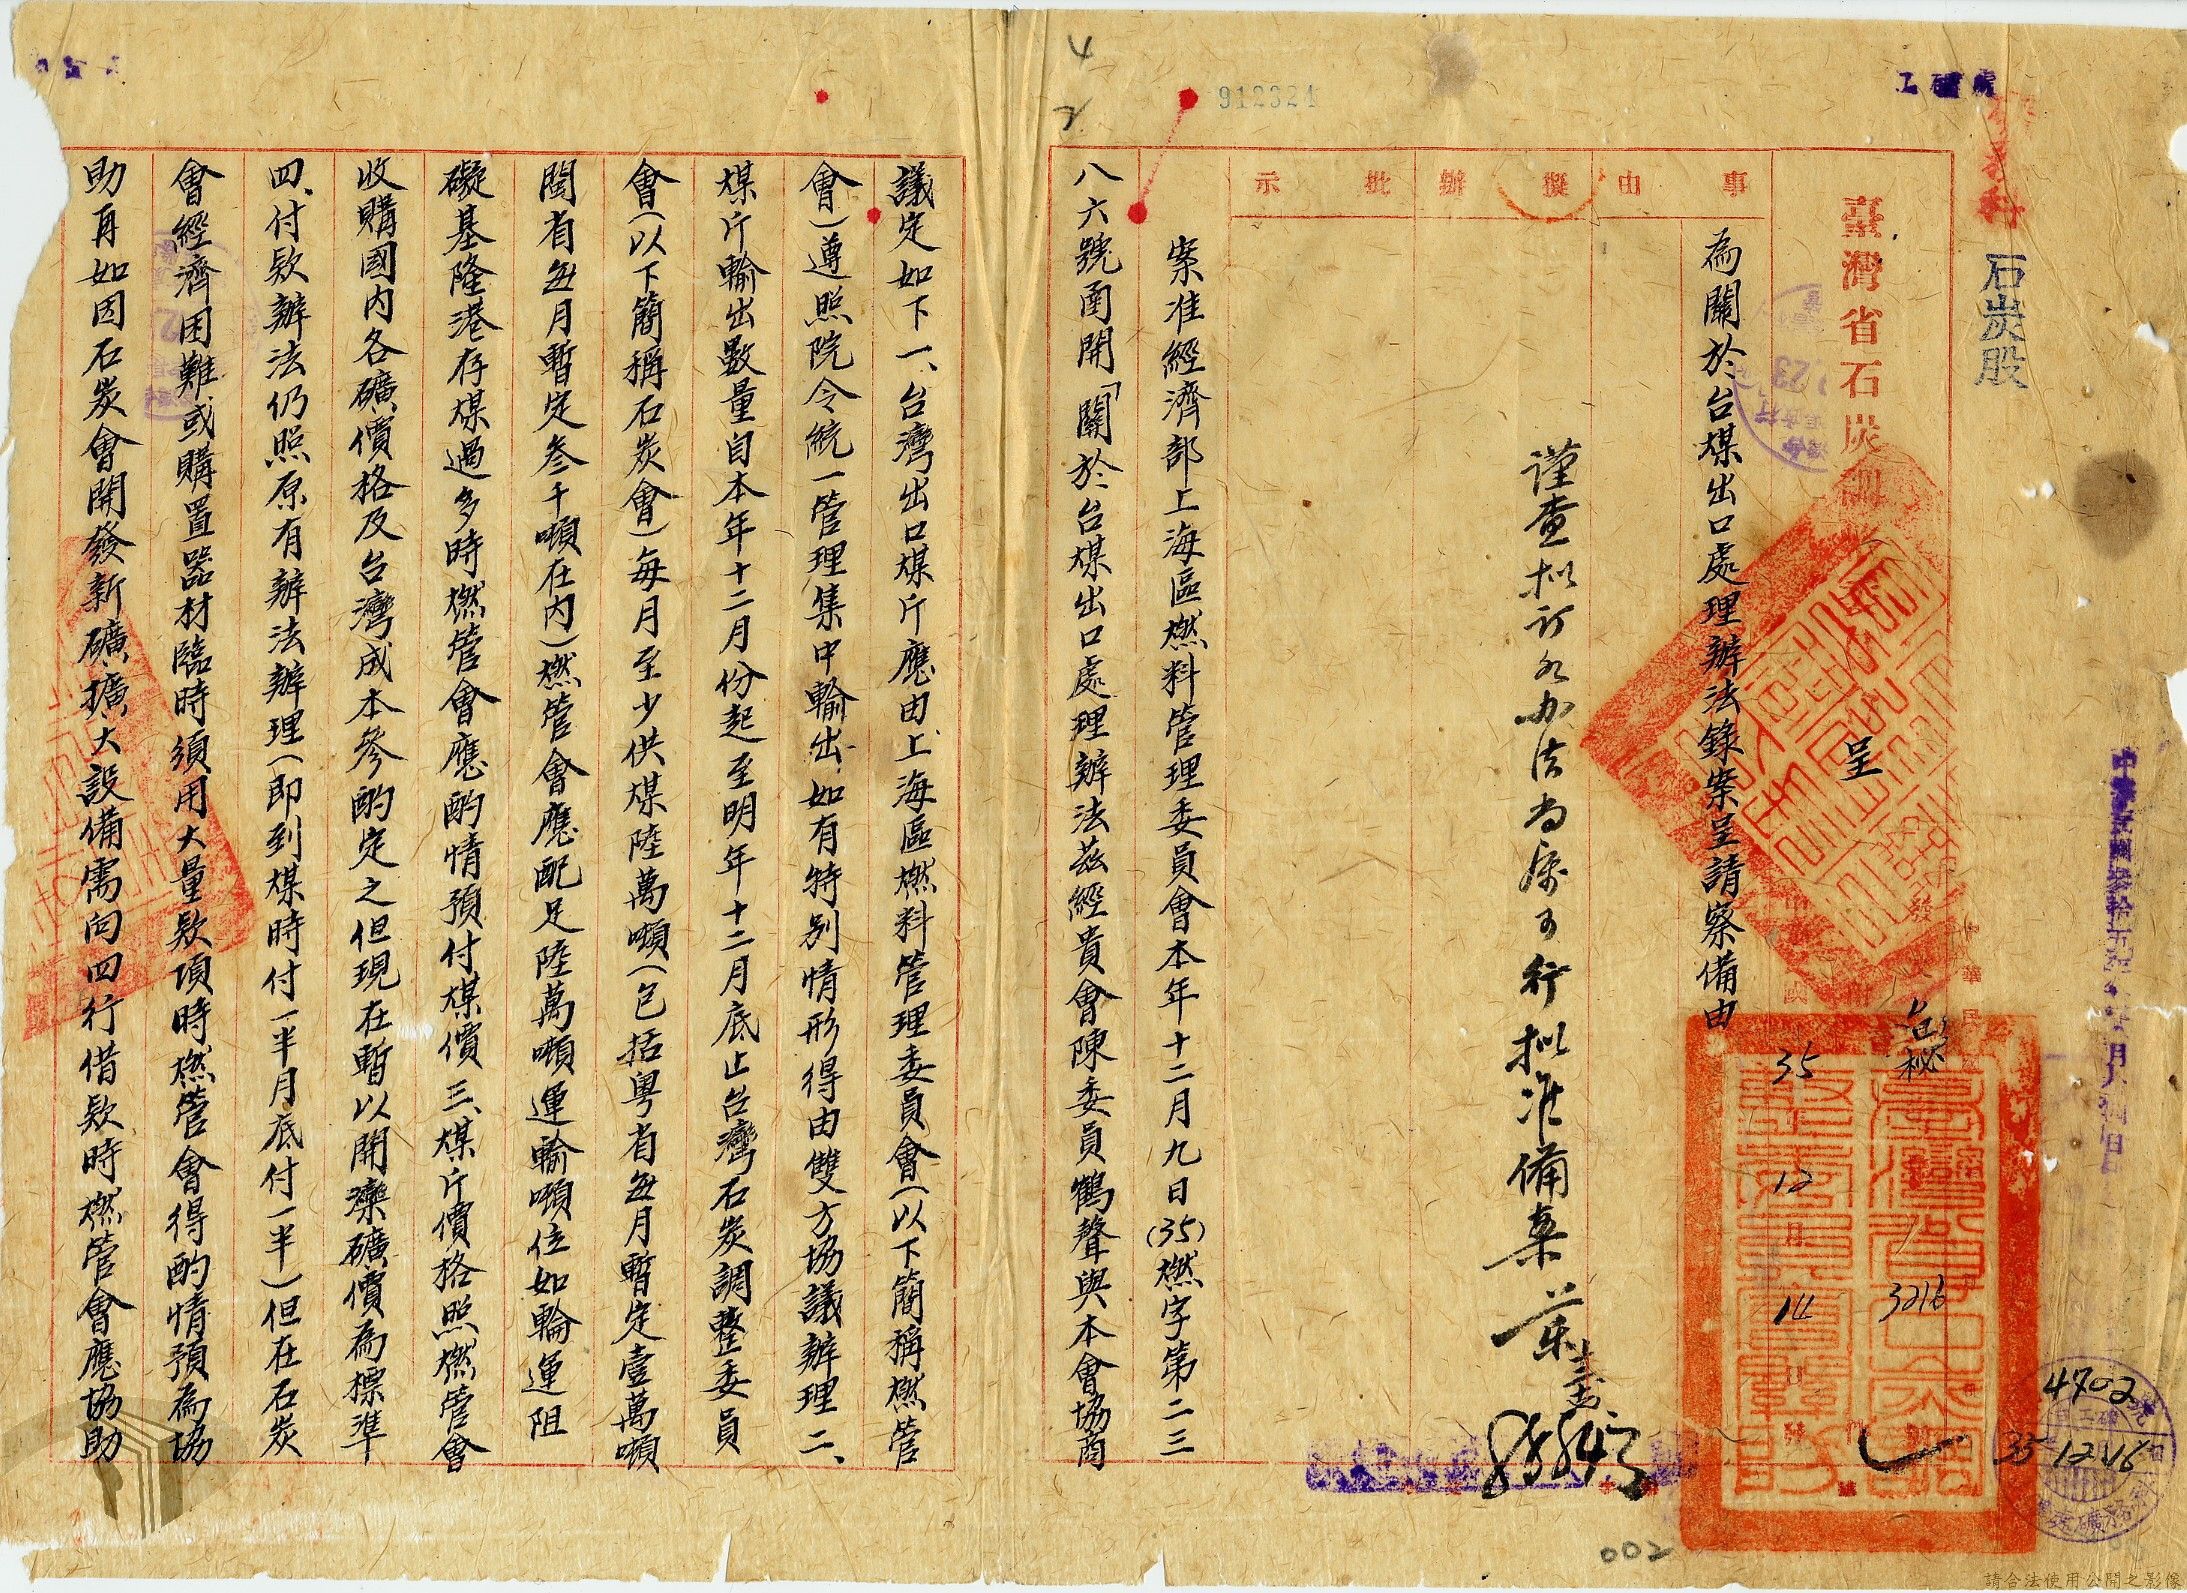 石炭股
臺灣省石炭調整委員會 呈
台秘 3216
35 12月14日
4702
35 12 16
事由
擬辦
批示
為關於台煤出口處理辦法錄案呈請察備由
912324
002
案准經濟部上海區燃料管理委員會本年十二月九日(35)燃字第二三
八六號函開「關於台煤出口處理辦法茲經貴會陳委員鶴聲與本會協商
議定如下一、台灣出口煤斤應由上海區燃料管理委員會(以下簡稱燃管
會)遵照院令統一管理集中輸出如有特別情形得由雙方協議辦理二、
煤斤輸出數量自本年十二月份起至明年十二月底止台灣石炭調整委員
會(以下簡稱石炭會)每月至少供煤陸萬噸(包括粵省每月暫定壹萬噸
閩省每月暫定叁千噸在內)燃管會應配足陸萬噸運輸噸位如輪運阻
礙基隆港存煤過多時燃管會應酌情預付煤價三、煤斤價格照燃管會
收購國內各礦價格及台灣成本參酌定之但現在暫以開灤礦價為標準
四、付欵辦法仍照原有辦法辦理(即到煤時付一半月底付一半)但在石炭
會經濟困難或購置器材臨時須用大量欵項時燃管會得酌情預為協
助再如因石炭會開發新礦擴大設備需向四行借欵時燃管會應協助
請合法使用公開之影像